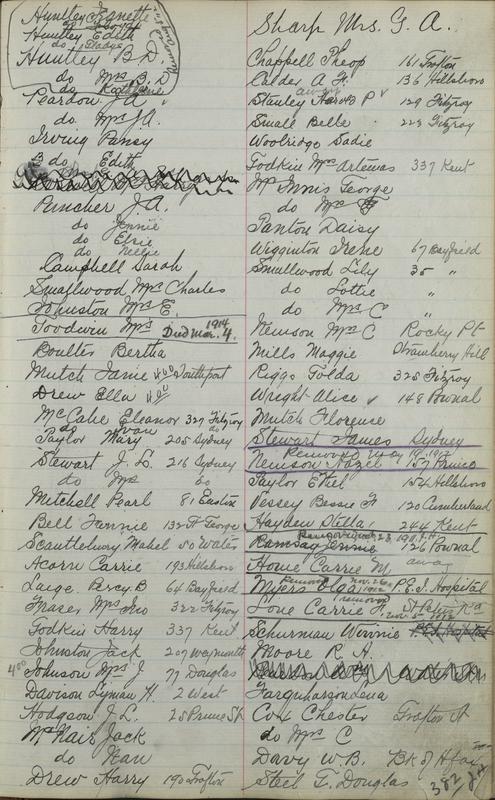 Huntley Jeanette
Huntley Edith
do Gladys
Huntley B D.
do Mrs B. D
do
Reardon J A
do Mrs J A.
Irving Pansy
do Edith
Puncher J. A.
do Jennie
do Elsie
do Nellie
Campbell Sarah
Smallwood Mrs Charles
Johnston Mrs E.
Goodwin Mrs Died Mar. 4. 1914
Boulter Bertha
Mutch Janie Southport
Drew Ella
McCabe Eleanor 327 Fitzroy
do Ivan do
Taylor Mary 205 Sydney
Stewart J. L. 216 Sydney
do Mrs do
Mitchell Pearl 81 Euston
Bell Fannie 132 St George
Scantlebury Mabel 50 Water
Acorn Carrie 193 Hillsboro
Large Percy B 64 Bayfield
Fraser Mrs Geo 322 Fitzroy
Godkin Harry 337 Kent
Johnston Jack 207 Weymouth
4 00 Johnson Mrs J 77 Douglas
Davison Lyman H. 2 West
Hodgson J. L. 25 Prince St
McNair Jack
do Jean
Drew Harry 190 Grafton
Sharp Mrs. G. A.
Chappell Theop 161 Grafton
Calder A F. 136 Hillsboro
away
Stanley Harold P 129 Fitzroy
Small Belle 228 Fitzroy
Woolridge Sadie
Godkin Mrs Artemas 337 Kent
McInnis George
do Mrs G
Panton Daisy
Wigginton Irene 67 Bayfield
Smallwood Lily 35 "
do Lottie "
do Mrs C "
Newson Mrs C Rocky Pt
Mills Maggie Strawberry Hill
Riggs Golda 325 Fitzroy
Wright Alice 148 Pownal
Mutch Florence
Stewart James Sydney
Newson Hazel 157 Prince
Taylor Ethel 154 Hillsboro
Vessey Bessie F 120 Cumberland
Hayden Stella 244 Kent
Ramsay Jennie 126 Pownal
Howe Carrie M. away
Myers Olga P. E. I. Hospital
removed
Lone Carrie A. St Peters Rd
Schurman Winnie
Moore R. A.
Farquharson Lena
Cox Chester Grafton St
do Mrs C
Davy W. B. Bk of
Steel G. Douglas